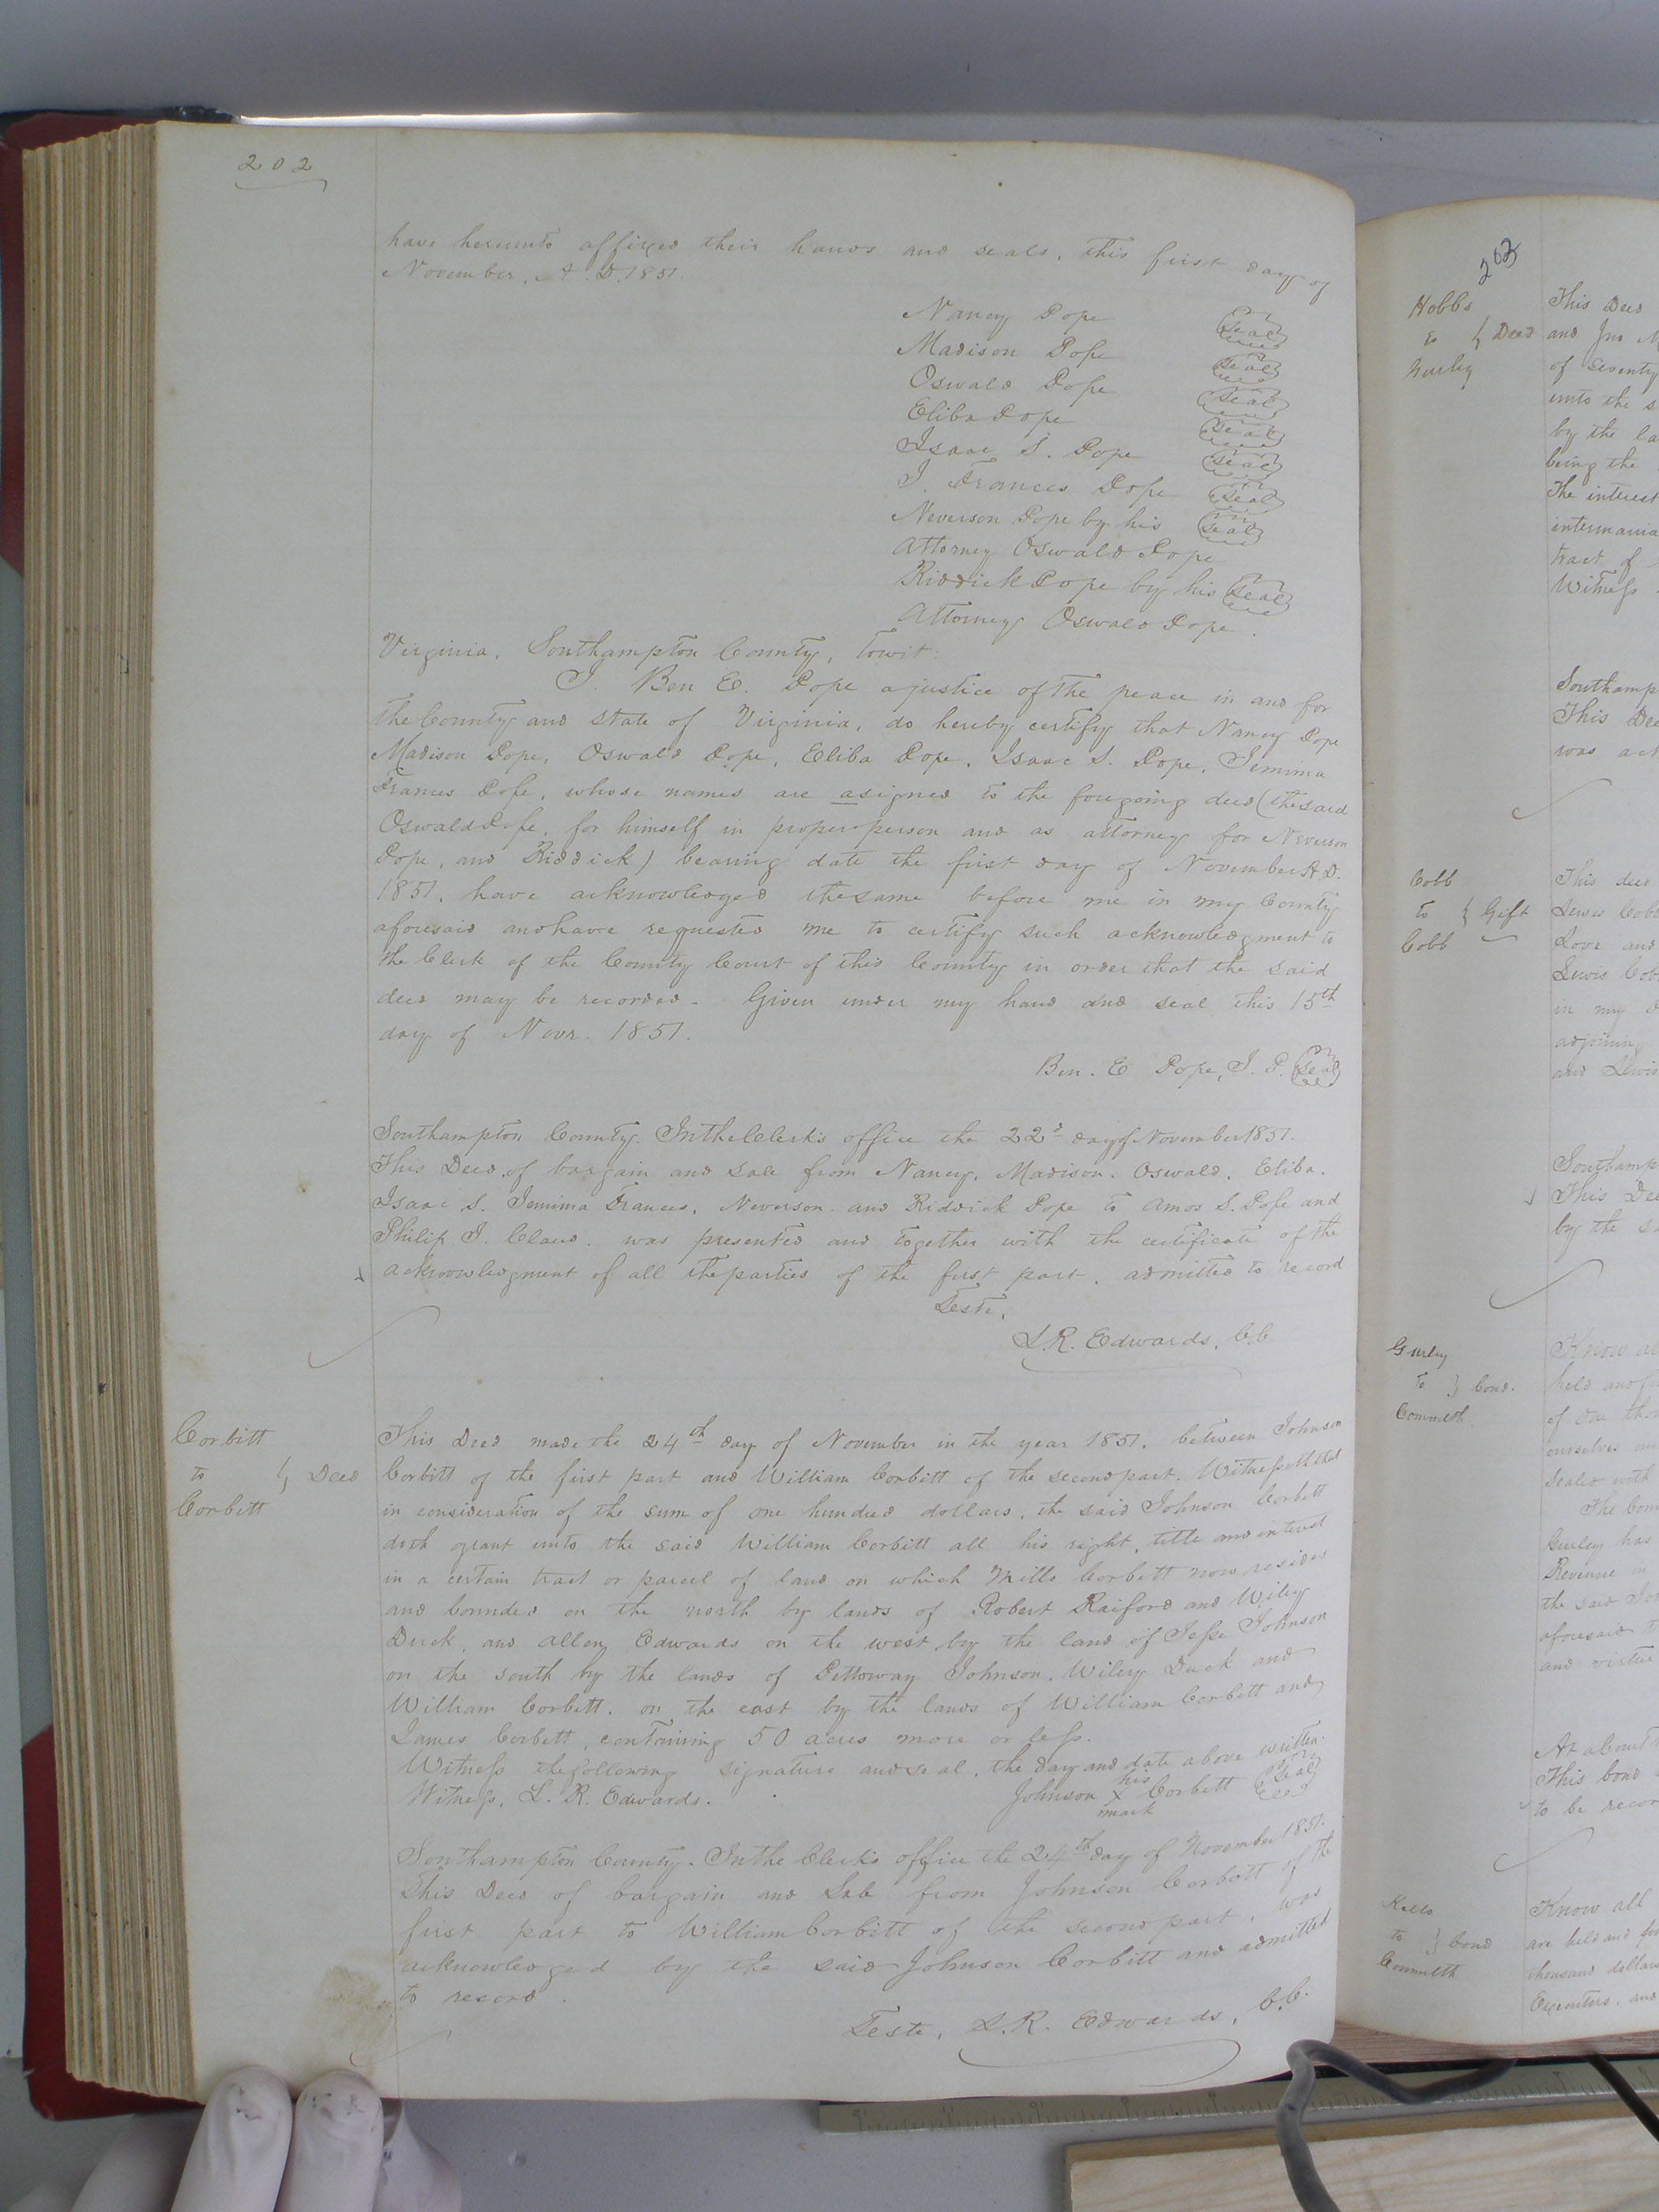 202
have hereunto affixed their hands and seals, this first day of
November, A.D. 1851.
Nancy Pope Seal
Madison Pope Seal
Oswald Pope Seal
Eliba Pope Seal
Isaac S. Pope Seal
J. Frances Pope Seal
Neverson Pope by his Seal
Attorney Oswald Pope
Riddick Pope by his Seal
Attorney Oswald Pope.
Virginia, Southampton County, Towit:
I. Ben E. Pope a justice of the peace in and for
the County and state of Virginia, do hereby certify that Nancy Pope
Madison Pope, Oswald Pope, Eliba Pope, Isaac S. Pope, Jemima
Frances Pope, whose names are asigned to the foregoing deed (the said
Oswald Pope, for himself in proper person and as attorney for Neverson
Pope, and Riddick) bearing date the first day of November A.D.
1851, have acknowledged the same before me in my County
aforesaid and have requested me to certify such acknowledgment to
the Clerk of the County Court of this County in order that the said
deed may be recorded. Given under my hand and seal this 15th
day of Novr. 1851.
Ben. E Pope, J.P. Seal
Southampton County. In the Clerk's office the 22d day of November 1851.
This Deed of bargain and sale from Nancy, Madison, Oswald, Eliba,
Isaac S. Jemima Frances, Neverson and Riddick Pope to Amos S. Pope and
Philip J. Claud. was presented and together with the certificate of the
acknowledgment of all the parties of the first part, admitted to record
Teste,
L.R. Edwards, C.C.
Corbitt
to } Deed
Corbitt
This Deed made the 24th day of November in the year 1851, between Johnson
Corbitt of the first part and William Corbitt of the second part. Witnesseth that
in consideration of the sum of one hundred dollars, the said Johnson Corbitt
doth grant unto the said William Corbitt all his right, title and interest
in a certain tract or parcel of land on which Mills Corbett now resides
and bounded on the north by lands of Robert Raiford and Wiley
Duck, and Allen Edwards on the west by the land of Jesse Johnson
on the south by the lands of Pettoway Johnson, Wiley Duck and
William Corbitt, on the east by the lands of William Corbitt and
James Corbett, containing 50 acres more or less.
Witness the following signature and seal, the day and date above written.
Witness, L. R. Edwards. Johnson his X mark Corbitt Seal
Southampton County. In the Clerk's office the 24th day of November 1851.
This Deed of bargain and Sale from Johnson Corbitt of the
first part to William Corbitt of the second part, was
acknowledged by the said Johnson Corbitt and admitted
to record.
Teste, L.R. Edwards, C.C.
203
Hobbs
to } Deed
Gurley
This Deed
and Jno
of Seventy
unto the s
by the la
being the
The interest
intermarria
tract of
Witness
Southamp
This Dee
was ack
Cobb
to } Gift
Cobb
This deed
Lewis Cobb
Love and
Lewis Cob
in my
adjoining
and Lewis
Southamp
This Dee
by the sa
Gurley
to } bond.
Commwth
Know al
held and fi
of One thou
ourselves
Sealed with
The Con
Gurley has
Revenue in
the said Joh
aforesaid
and virtue
At a bount
This bond
to be recor
to } bond
Commwlth
Know all
are held and fir
thousand dollars
Executors, and